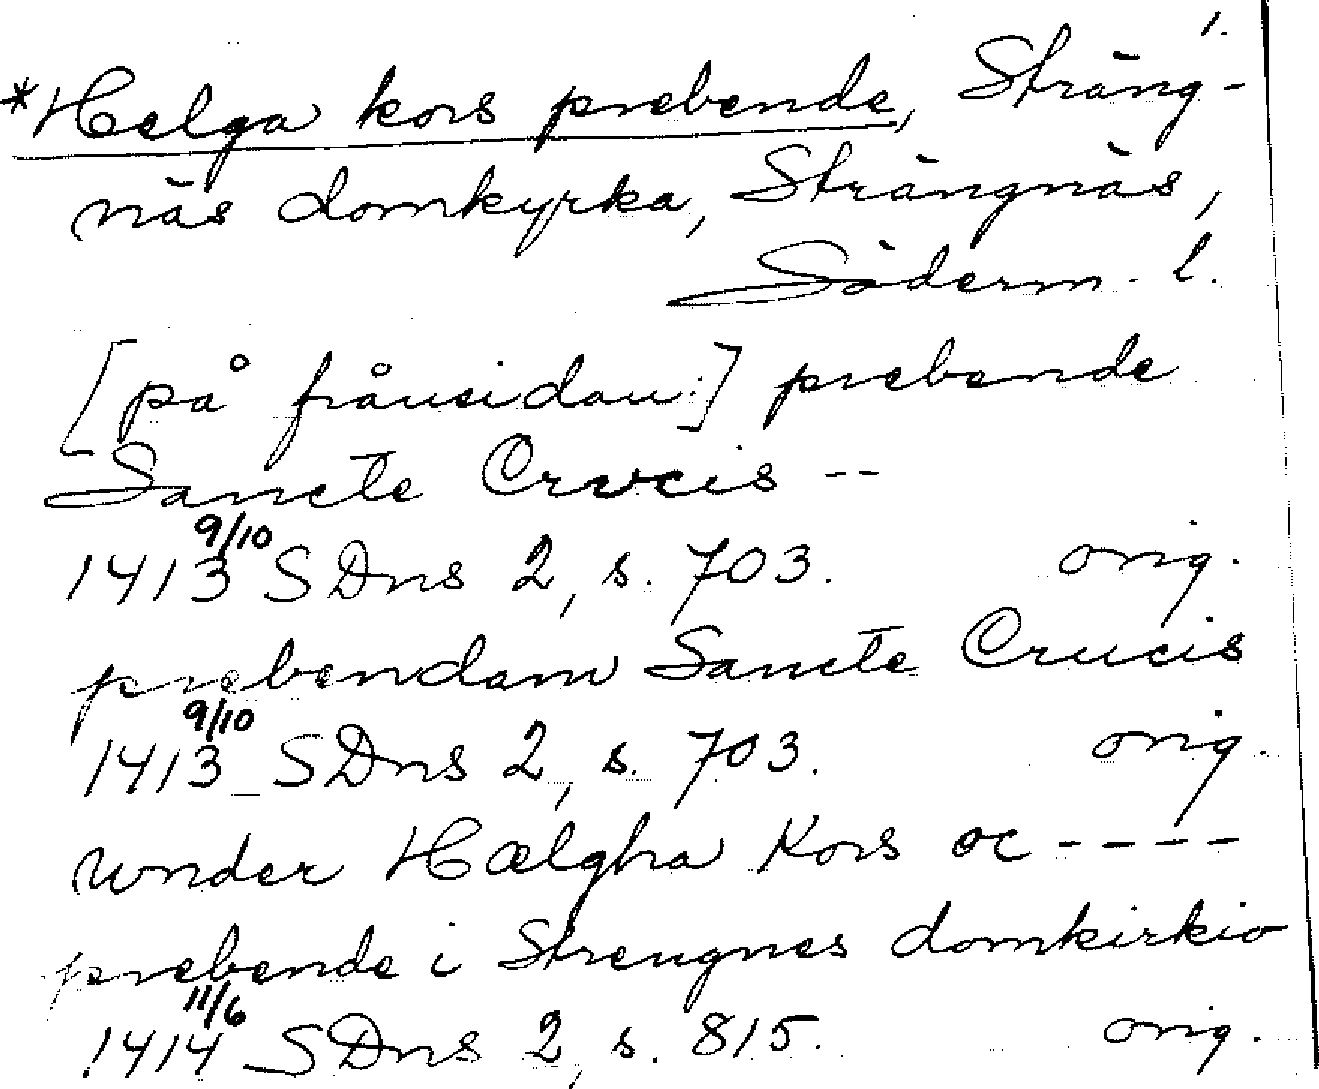 1.
*Helga kors prebende, Sträng-
näs domkyrka, Strängnäs,
Söderm. l.
[på frånsidan:] prebende
Sancte Crucis --
1413 9/10 SDns 2, s. 703. orig.
prebendam Sancte Crucis
1413 9/10 SDns 2, s. 703. orig.
wnder Hælgha Kors oc ----
prebende i Strengnes domkirkio
1414 11/6 SDns 2, s. 815. orig.